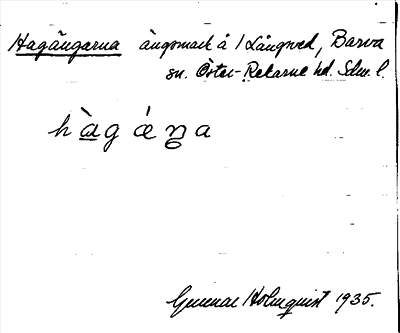 Hagängarna ängsmark å 1 Långved, Barva
sn. Öster-Rekarne hd. Sdm. l.
hàgáŋa
Gunnar Holmquist 1935.